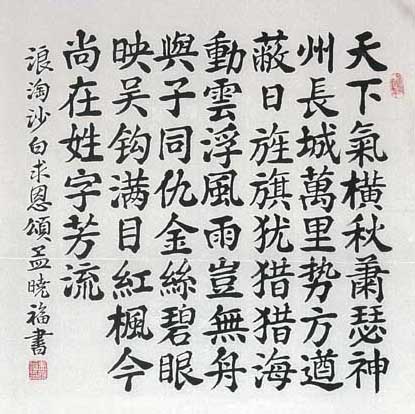 天下氣橫秋蕭瑟神
州長城萬里势方遒
蔽日旌旗犹猎猎海
動雲浮風雨豈無舟
與子同仇金絲碧眼
映吴钩满目紅楓今
尚在姓字芳流
浪淘沙白求恩頌孟曉福書